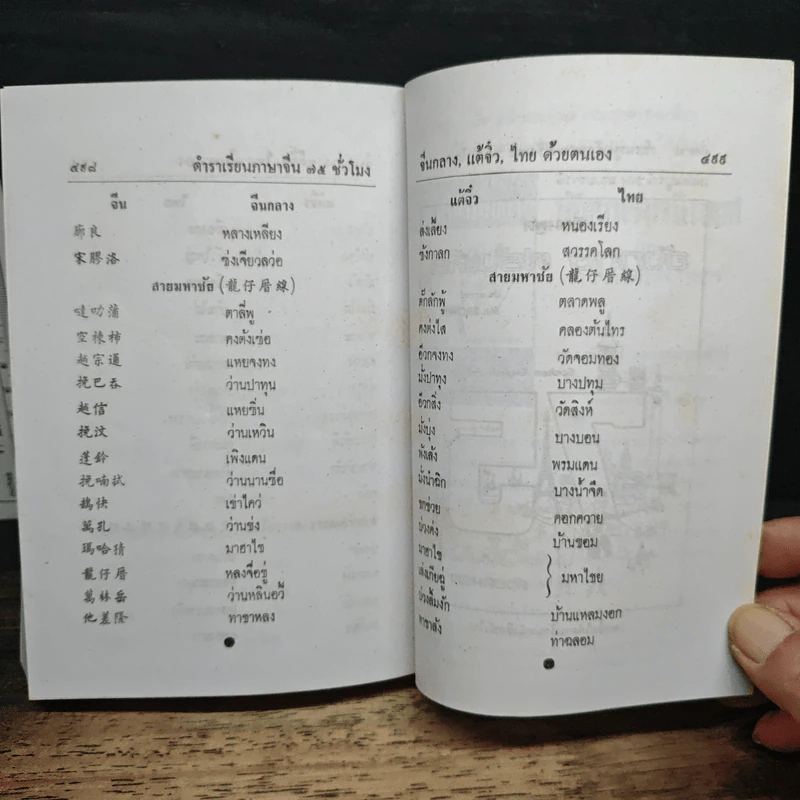 ๔๙๘ ตำราเรียนภาษาจีน ๗๕ ชั่วโมง
จีน จีนกลาง
廊良 หลางเหลียง
宋膠洛 ซ่งเจียวลว่อ
สายมหาชัย (龍仔厝線)
噠叻蒲 ตาลี่พู
空棟柿 คงตังเซ่อ
越宗通 แหยจงทง
挽巴吞 ว่านปาทุน
越信 แหยซิ่น
挽汶 ว่านเหวิน
蓬鈴 เพิงแดน
挽喃拭 ว่านนานซื่อ
鵠快 เซ่าไคว่
萬孔 ว่านข่ง
瑪哈猜 มาฮาไช
龍仔厝 หลงจื่อชู่
萬林岳 ว่านหลินอวี้
他差隆 ทาชาหลง
จีนกลาง, แต้จิ๋ว, ไทย ด้วยตนเอง ๔๙๙
แต้จิ๋ว ไทย
ล่งเลี้ยง หนองเรียง
ซ้งกาลก สวรรคโลก
สายมหาชัย (龍仔厝線)
ตั๊กลักพู้ ตลาดพลู
คงต่งไส คลองต้นไทร
อ๊วกจงทง วัดจอมทอง
มั้งปาทุง บางปทุม
อ๊วกสิ่ง วัดสิงห์
มั้งบุ่ง บางบอน
พ้งเล้ง พรมแดน
มั้งนำฉิก บางน้ำจืด
คอกควาย
บ้านขอม
มาฮาไช
เล่งเกียฉู่ มหาไชย
บ้านแหลมงอก
ทาชาลัง ท่าฉลอม